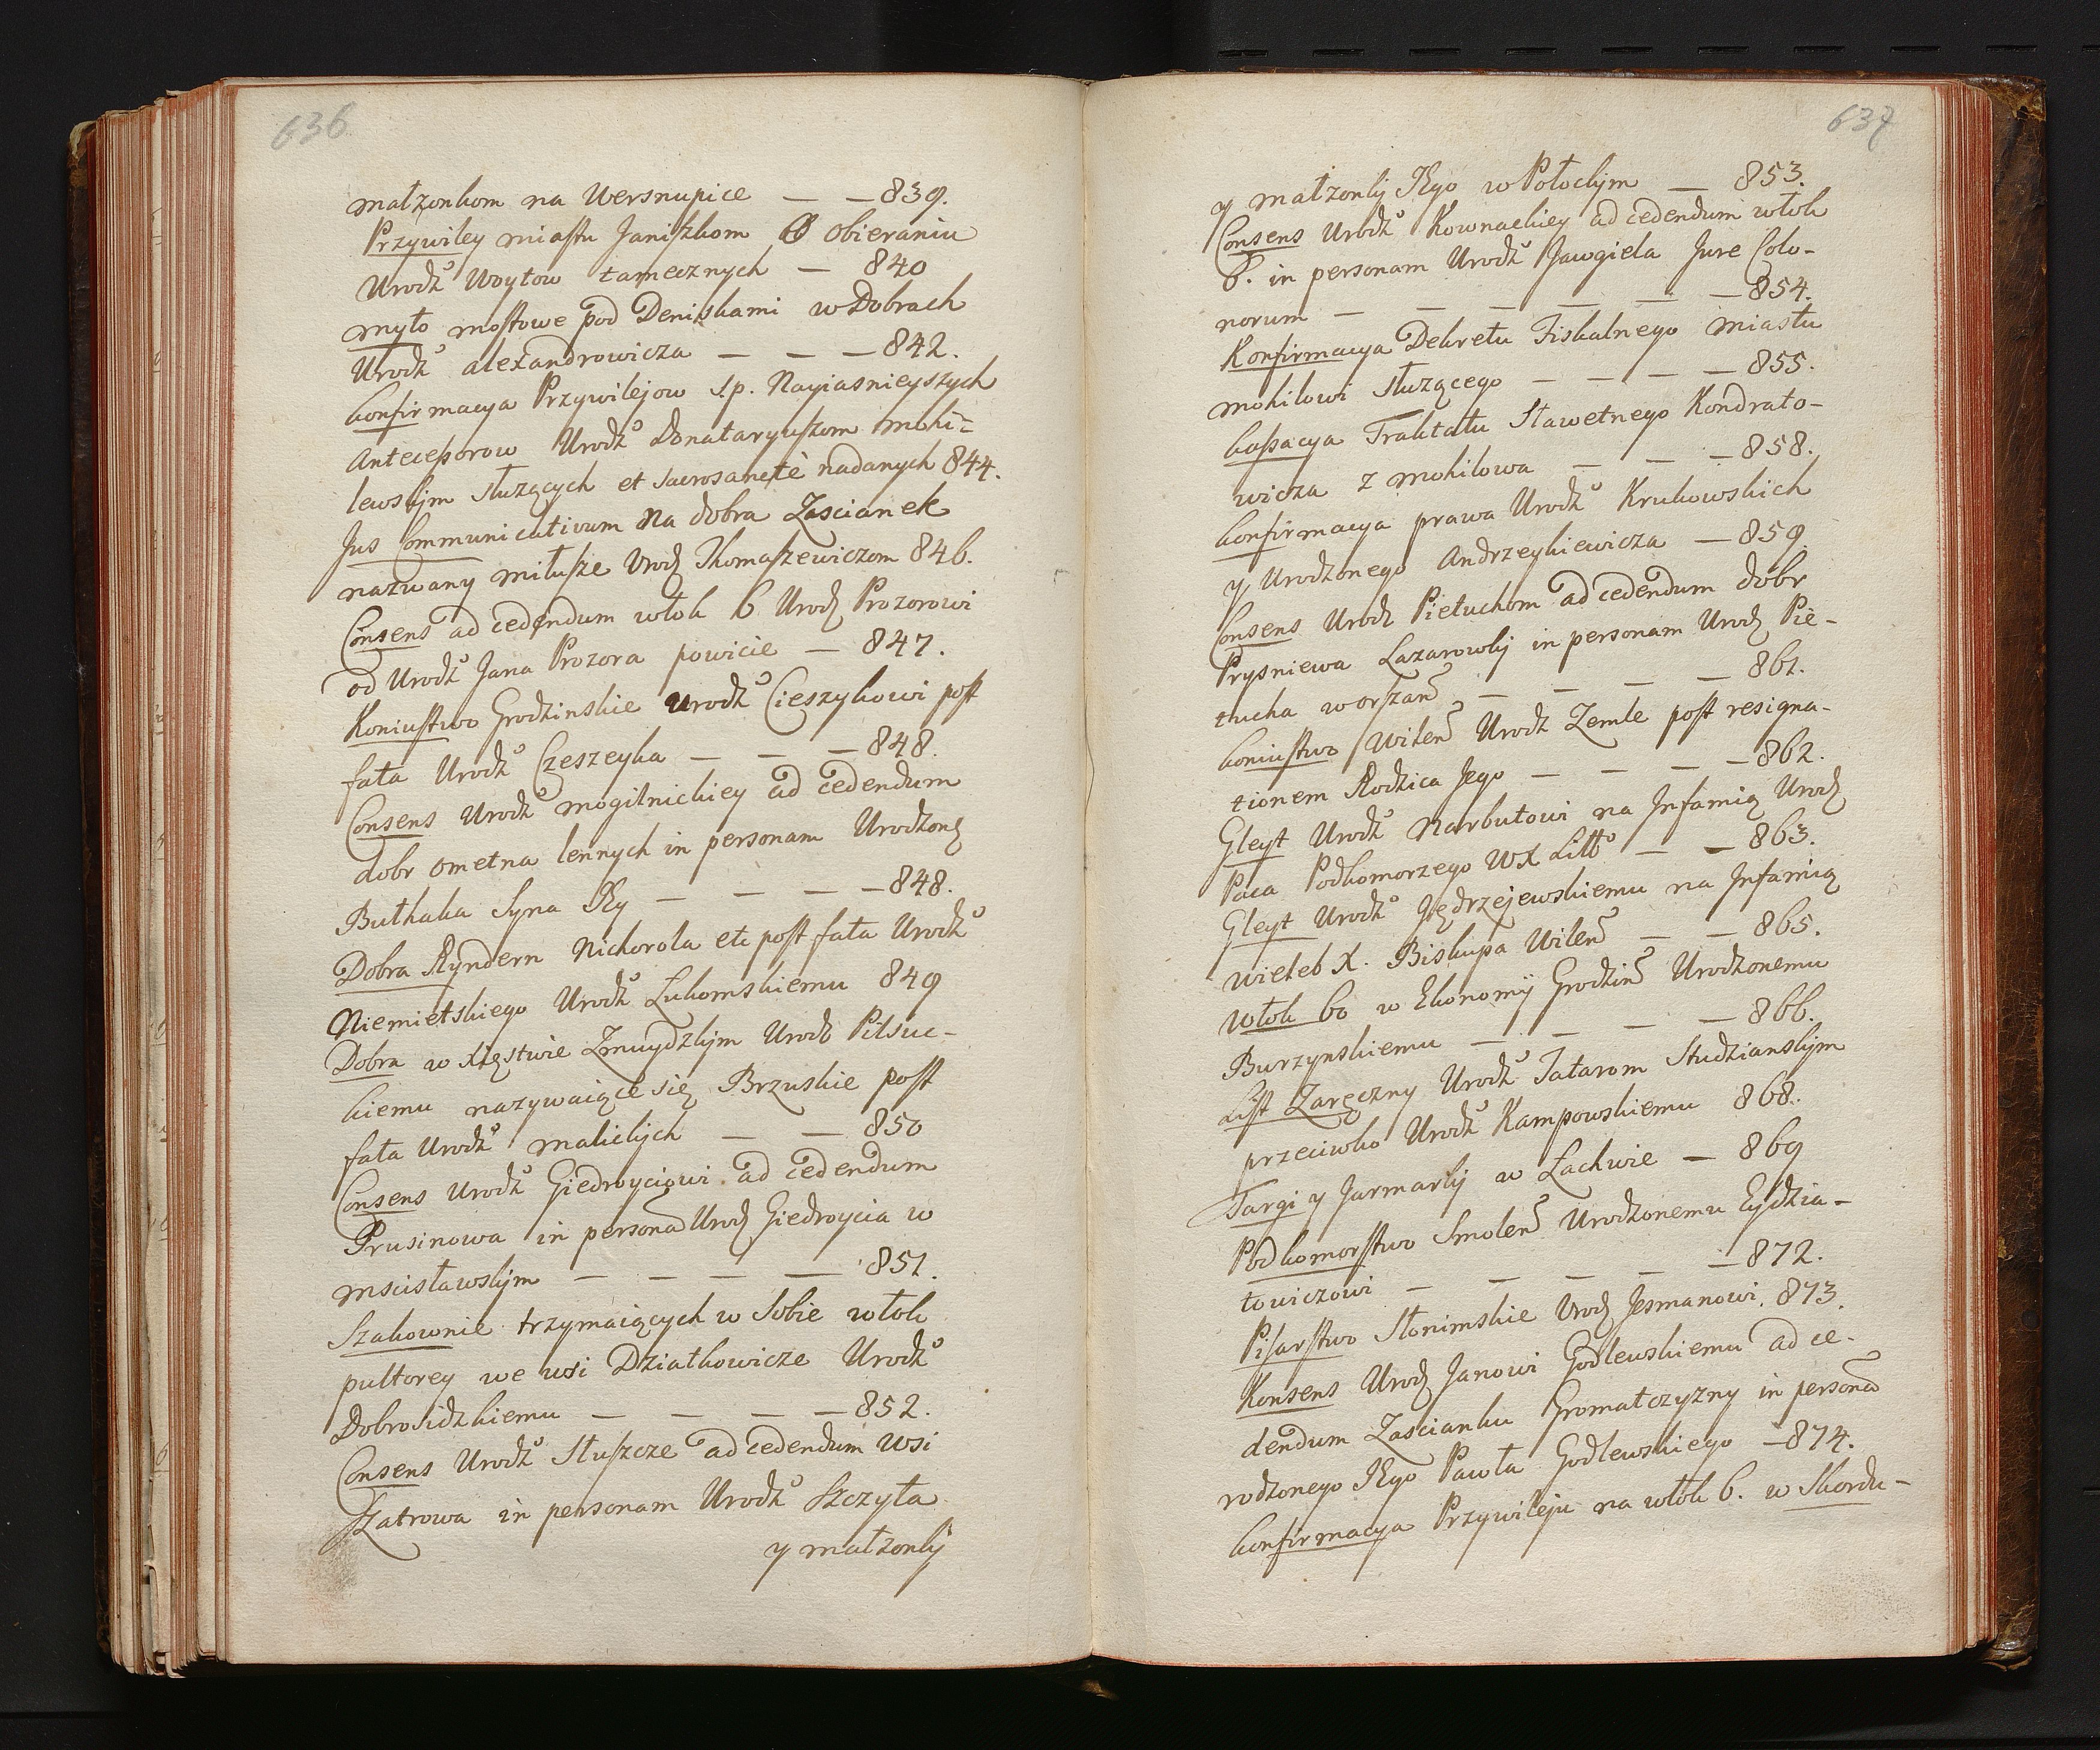 636
małzonkom na Wersnupice — — 839.
Przywiley miastu Janiszkom O Obieraniu
Urodz° Woytow tamecznych — 840
myto mostowe pod Deniskami w Dobrach
Urodz° alexandrowicza — — — 842.
konfirmacya Przywilejow s.p. Nayiasnieyszych
Antecessorow Urodz° Donataryuszom mohi=
lewskim słuzących et sacrosancte nadanych 844.
Jus Communicativum na dobra Zascianek
nazwany miłusze Urodz Thomaszewiczom 846.
Consens ad cedendum włok 6 Urodz Prozorowi
od Urodz° Jana Prozora powicie — 847.
Koniustwo Grodzinskie Urodz° Cieszykowi post
fata Urodz° Czeszeyka — — — 848.
Consens Urodz° mogilnickiey ad cedendum
dobr ometna lennych in personam Urodzon
Buthaka Syna Jey — — — — 848.
Dobra Ryndern Nickorola etc post fata Urodz°
Niemietskiego Urodz° Lukomskiemu 849
Dobra w Xięstwie Zmuydzkim Urodz Pilsuc-
kiemu nazywaiące się Brzuskie post
fata Urodz° malickich — — 850
Consens Urodz° Giedroyciowi ad cedendum
Prusinowa in personã Urodz Giedroycia w
mscisławskim — — — — 851.
Szakownie trzymaiących w Sobie włok
pułtorey we wsi Dziatkowicze Urodz°
Dobrosidzkiemu — — — — 852.
Consens Urodz° Słuszcze ad cedendum wsi
Zatrowa in personam Urodz° Szczyta
y małzonki
637
y małzonki Jego w Połockim — 853.
Consens Urodz° Kownackiey ad cedendum włok
6. in personam Urodz° Jawgiela Jure Colo-
norum — — — — — — 854.
Konfirmacya Dekretu Fiskalnego miastu
mohilowi słuzącego — — — — 855.
kassacya Traktatu Sławetnego Kondrato-
wicza z mohilowa — — — 858.
konfirmacya prawa Urodz° Krukowskich
y Urodzonego Andrzeykiewicza — 859
Consens Urodz Pietuchom ad cedendum dobr
Prysniewa Lazarowki in personam Urodz Pie-
tucha w orszan — — — — 861.
koniustwo Wilen Urodz Zemle post resigna-
tionem Rodzica Jego — — — — 862.
Gleyt Urodz° Narbutowi na Infamią Urodz
Paca Podkomorzego WX Litt° — — 863.
Gleyt Urodz° Jędrzejewskiemu na Infamią
wieleb X. Biskupa Wilen — — 865.
włok 60 w Ekonomij Grodzin Urodzonemu
Burzynskiemu — — — — 866.
List Zaręczny Urodz° Tatarom Studzianskim
przeciwko Urodz° Kampowskiemu 868.
Targi y Jarmarki w Lachwie — 869
Podkomorstwo Smolen Urodzonemu Eydzia-
towiczowi — — — — — 872.
Pisarstwo Słonimskie Urodz Jesmanowi. 873.
Konsens Urodz Janowi Godlewskiemu ad ce-
dendum Zascianku Gromatczyzny in personã
rodzonego Jego Pawła Godlewskiego — 874.
konfirmacya Przywileju na włok 6. w Skordu-